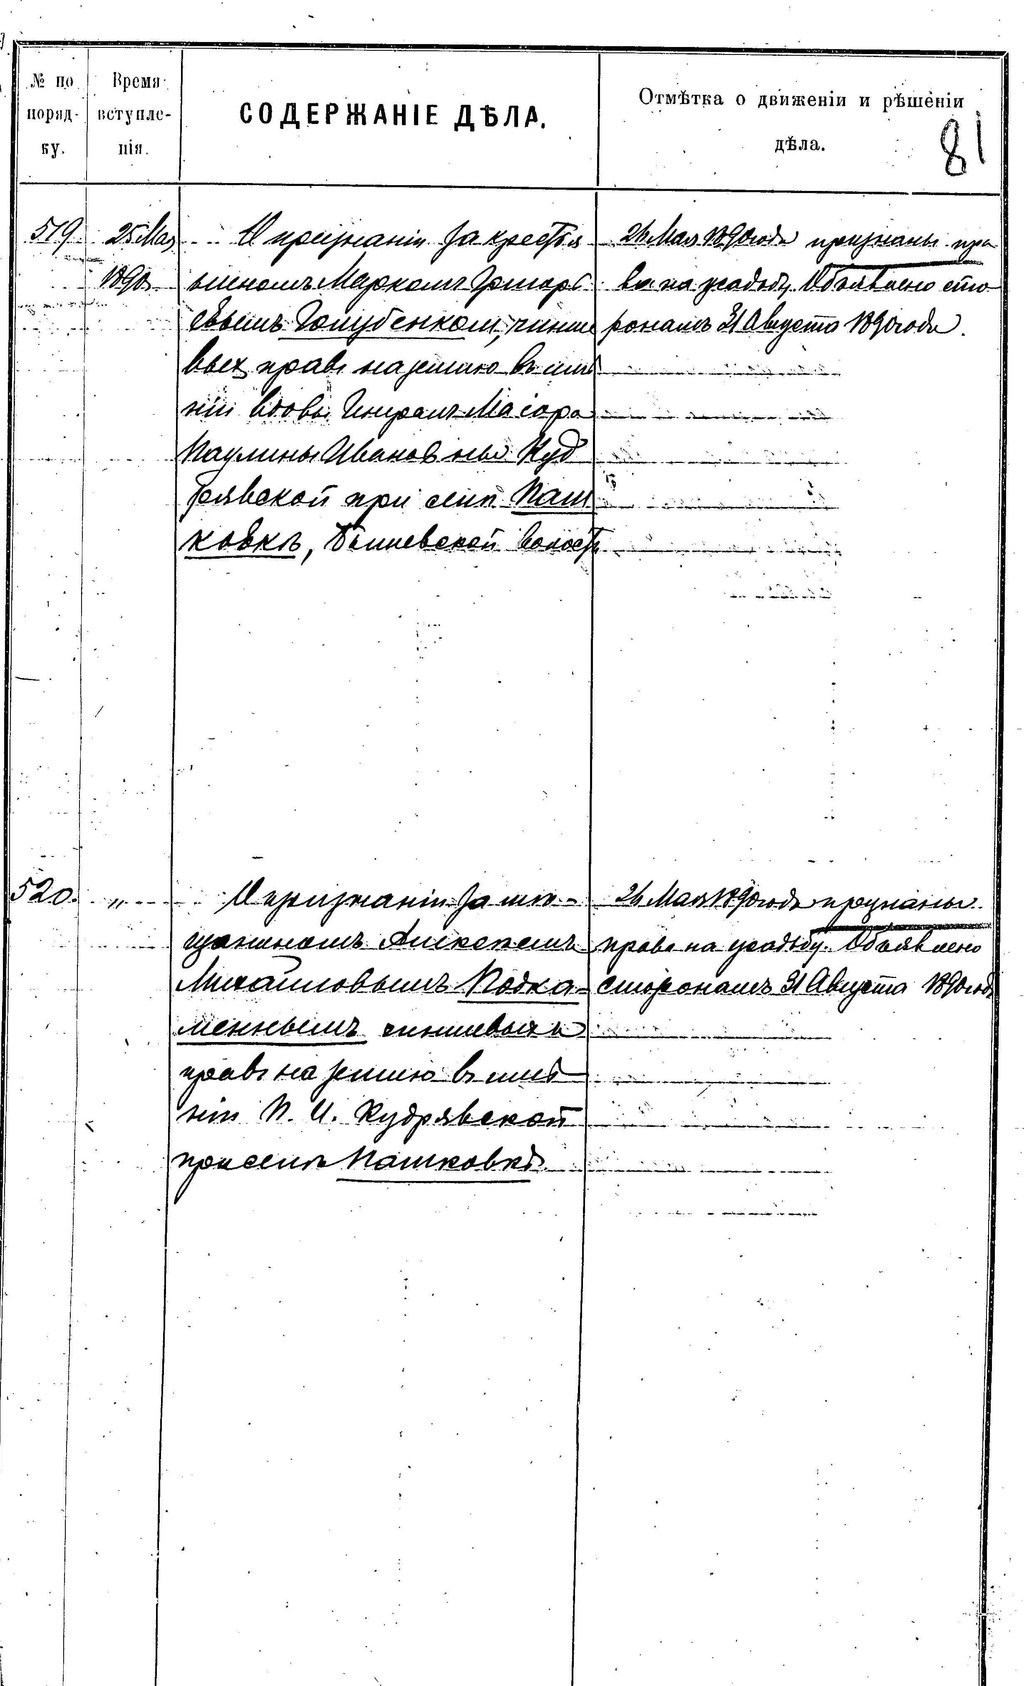 № по поряд- ку.
Время вступле- нія.
СОДЕРЖАНІЕ ДѢЛА.
Отмѣтка о движеніи и рѣшеніи дѣла.
81
519.
25 Мая
1890.
О признаніи за кресть
яниномъ Маркомъ Григорь
евымъ Голубенкомъ, чинше
выхъ правъ на землю въ имѣ
ніи вдовы Генералъ Маіора
Паулины Ивановны Куд
рявской при селѣ Паш
ковкѣ, Бышевской волости
26 Мая 1890 года признаны пра
ва на усадьбу. Объявлено сто
ронамъ 31 Августа 1890 года.
520.
"
О признаніи за мѣ-
щаниномъ Алексѣемъ
Михайловымъ Подка-
меннымъ чиншевыхъ
правъ на землю въ имѣ
ніи П. И. Кудрявской
при селѣ Пашковкѣ.
26 Мая 1890 года признаны
права на усадьбу. Объявлено
сторонамъ 31 Августа 1890 года